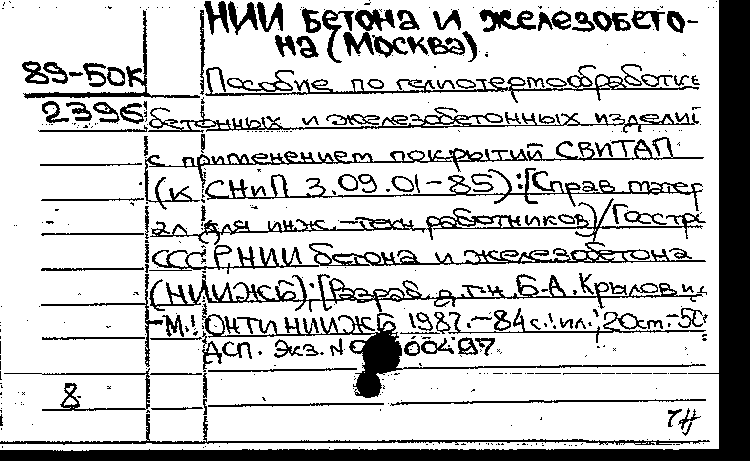 НИИ бетона и железобето-
на (Москва).
89-50К Пособие по гелиотермообработке
2396 бетонных и железобетонных изделий
с применением покрытий СВИТАП
(к СНиП 3.09.01-85):[Справ матер
ал для инж.-техн работников)/Госстро
СССР,НИИ бетона и железобетона
(НИИЖБ);[Разраб. д.т.н. Б.А. Крылов и
-М.: ОНТИ НИИЖБ 1987.-84с.:ил.;20ст.-50
ДСП. Экз. 00497
8